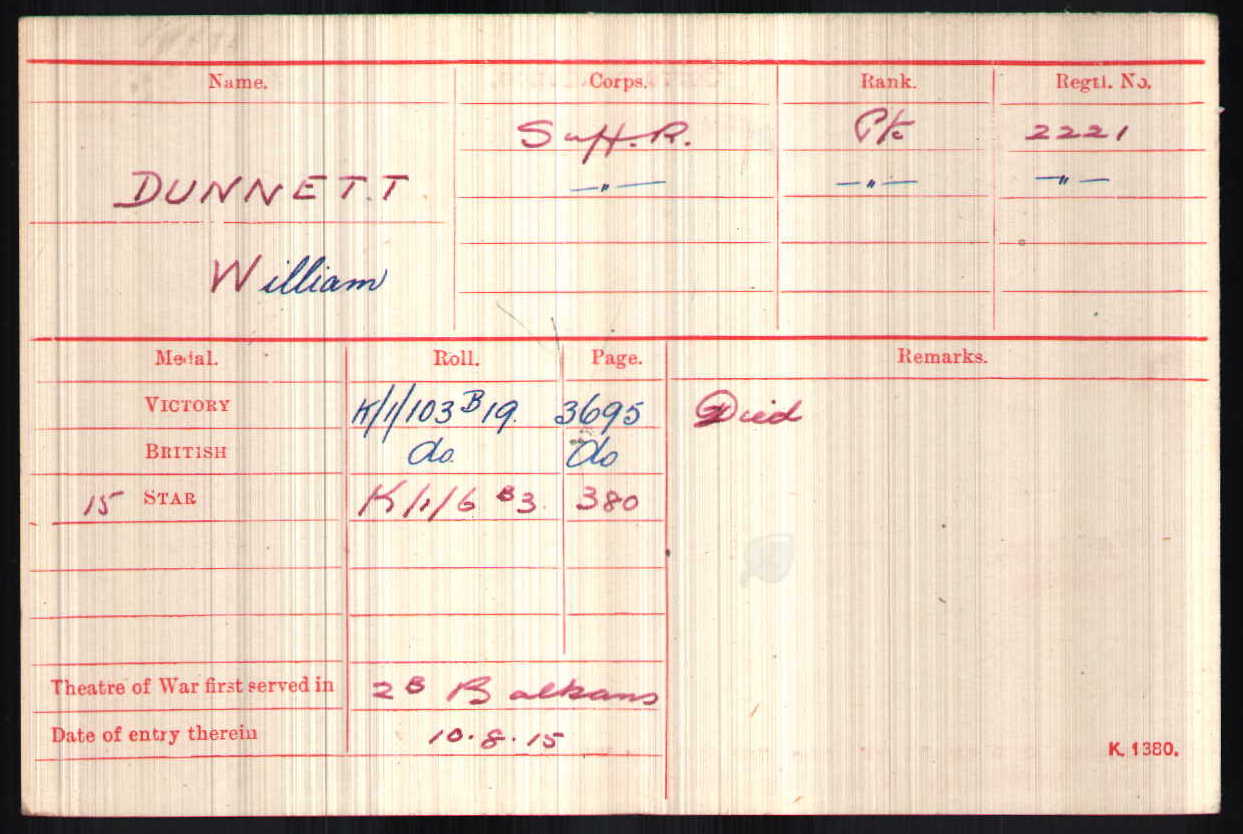 Name. Corps. Rank. Regtl. No.
Suff. R. Pte 2221
DUNNETT —"— —"— —"—
William
Medal. Roll. Page. Remarks.
VICTORY K/1/103 B19. 3695 Died
BRITISH do. do
15 STAR K/1/6 B3. 380
Theatre of War first served in 2B Balkans
Date of entry therein 10.8.15
K. 1380.